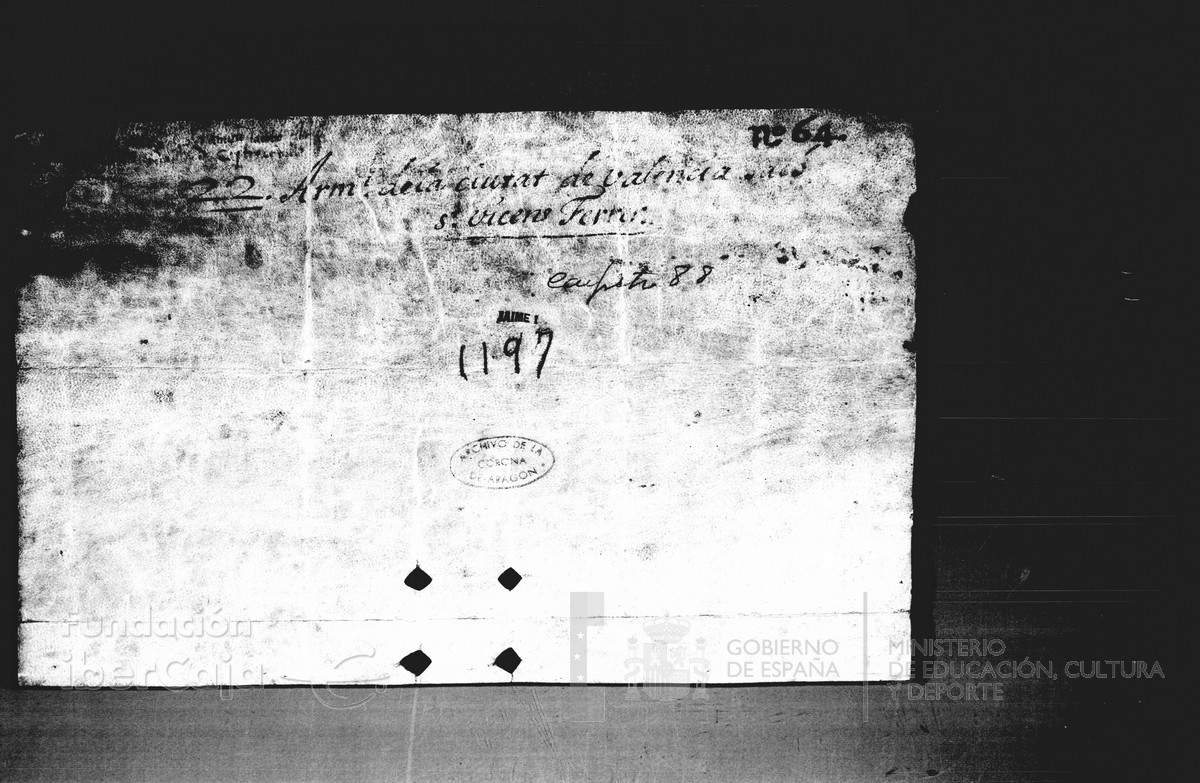 nº 64.
22. Arm.¹ dela ciutat de valencia
st. vicens Ferrer.
88
JAIME I
1197
ARCHIVO DE LA
CORONA
DE ARAGON
Fundación
iberCaja
GOBIERNO
DE ESPAÑA
MINISTERIO
DE EDUCACIÓN, CULTURA
Y DEPORTE